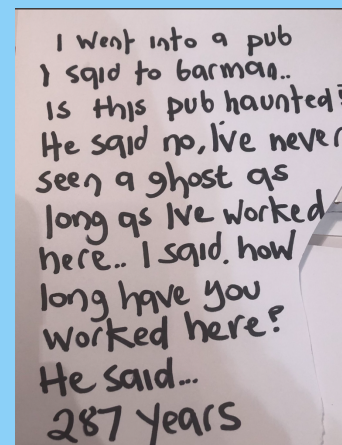 I went into a pub
I said to barman..
is this pub haunted?
He said no, I've never
seen a ghost as
long as Ive worked
here.. I said. how
long have you
worked here?
He said...
287 years